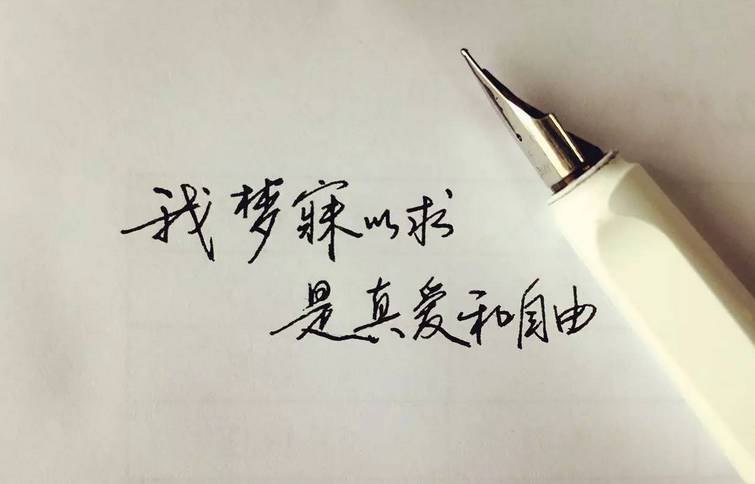 我梦寐以求
是真爱和自由